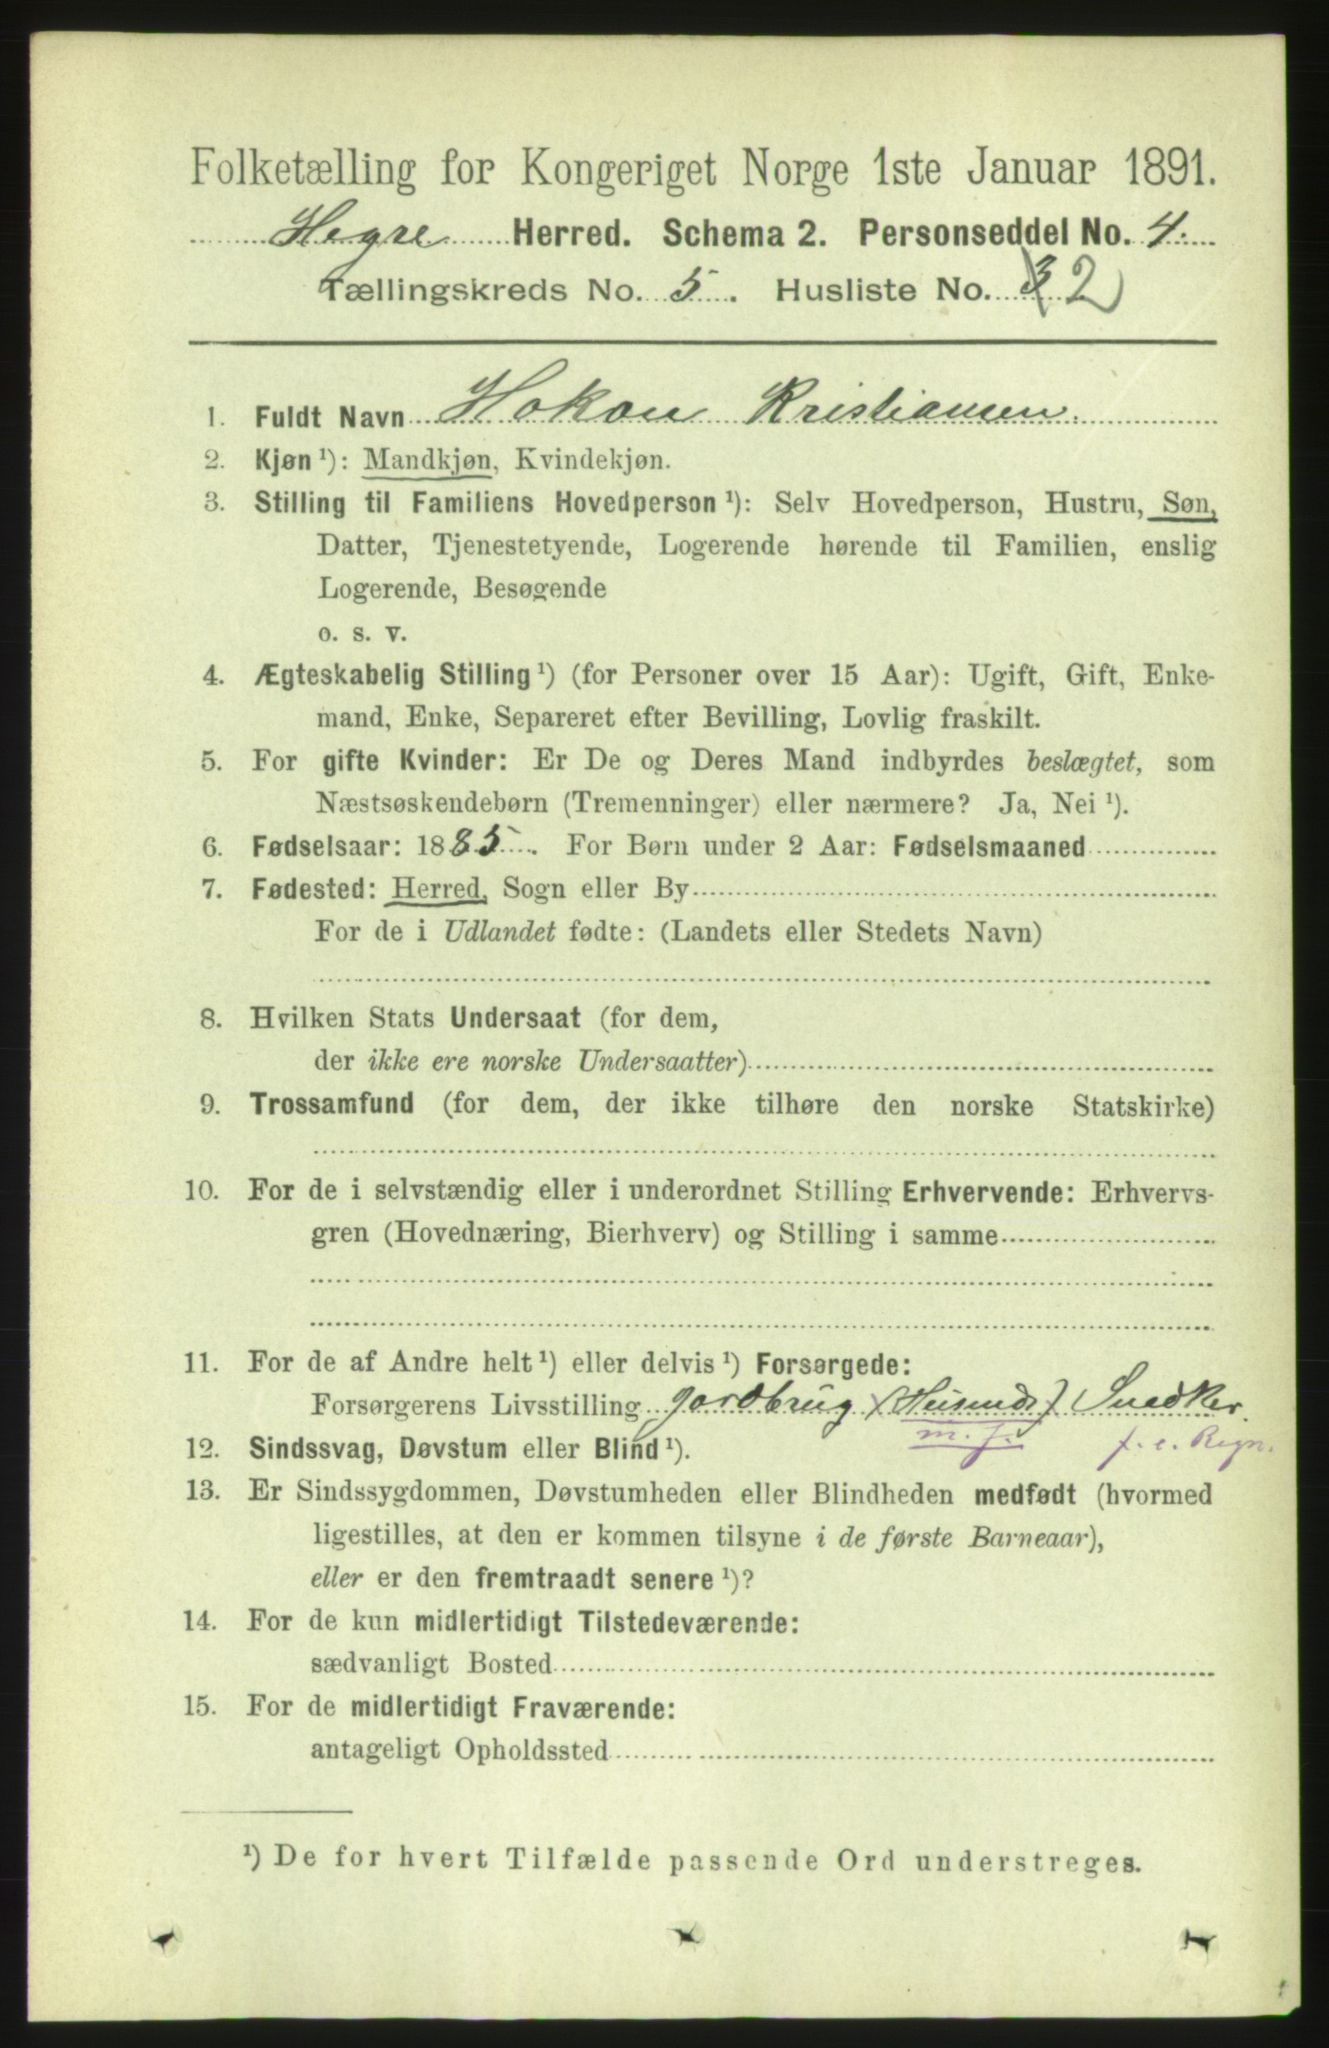 Folketælling for Kongeriget Norge 1ste Januar 1891.
Hegre Herred. Schema 2. Personseddel No. 4.
Tællingskreds No. 5. Husliste No. 3 2
1. Fuldt Navn Hokon Kristiansen.
2. Kjøn ¹): Mandkjøn, Kvindekjøn.
3. Stilling til Familiens Hovedperson ¹): Selv Hovedperson, Hustru, Søn,
Datter, Tjenestetyende, Logerende hørende til Familien, enslig
Logerende, Besøgende
o. s. v.
4. Ægteskabelig Stilling ¹) (for Personer over 15 Aar): Ugift, Gift, Enke-
mand, Enke, Separeret efter Bevilling, Lovlig fraskilt.
5. For gifte Kvinder: Er De og Deres Mand indbyrdes beslægtet, som
Næstsøskendebørn (Tremenninger) eller nærmere? Ja, Nei ¹).
6. Fødselsaar: 1885. For Børn under 2 Aar: Fødselsmaaned
7. Fødested: Herred, Sogn eller By
For de i Udlandet fødte: (Landets eller Stedets Navn)
8. Hvilken Stats Undersaat (for dem,
der ikke ere norske Undersaatter)
9. Trossamfund (for dem, der ikke tilhøre den norske Statskirke)
10. For de i selvstændig eller i underordnet Stilling Erhvervende: Erhvervs-
gren (Hovednæring, Bierhverv) og Stilling i samme
11. For de af Andre helt ¹) eller delvis ¹) Forsørgede:
Forsørgerens Livsstilling Jordbrug (Husmds) Snedker.
m. j. f. e. Regn.
12. Sindssvag, Døvstum eller Blind ¹).
13. Er Sindssygdommen, Døvstumheden eller Blindheden medfødt (hvormed
ligestilles, at den er kommen tilsyne i de første Barneaar),
eller er den fremtraadt senere ¹)?
14. For de kun midlertidigt Tilstedeværende:
sædvanligt Bosted
15. For de midlertidigt Fraværende:
antageligt Opholdssted
¹) De for hvert Tilfælde passende Ord understreges.